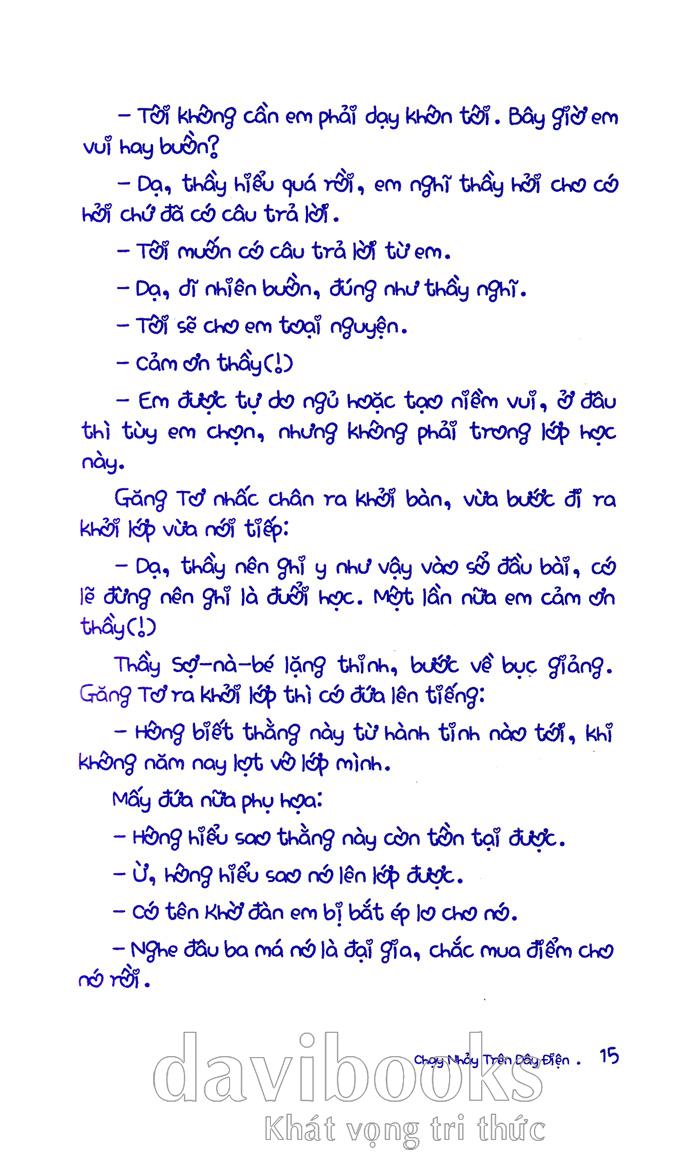 – Tôi không cần em phải dạy khôn tôi. Bây giờ em
vui hay buồn?
– Dạ, thầy hiểu quá rồi, em nghĩ thầy hỏi cho có
hỏi chứ đã có câu trả lời.
– Tôi muốn có câu trả lời từ em.
– Dạ, dĩ nhiên buồn, đúng như thầy nghĩ.
– Tôi sẽ cho em toại nguyện.
– Cảm ơn thầy(!)
– Em được tự do ngủ hoặc tạo niềm vui, ở đâu
thì tùy em chọn, nhưng không phải trong lớp học
này.
Găng Tơ nhấc chân ra khỏi bàn, vừa bước đi ra
khỏi lớp vừa nói tiếp:
– Dạ, thầy nên ghi y như vậy vào sổ đầu bài, có
lẽ đừng nên ghi là đuổi học. Một lần nữa em cảm ơn
thầy(!)
Thầy Sợ-nà-bé lặng thinh, bước về bục giảng.
Găng Tơ ra khỏi lớp thì có đứa lên tiếng:
– Hông biết thằng này từ hành tinh nào tới, khi
không năm nay lọt vô lớp mình.
Mấy đứa nữa phụ họa:
– Hông hiểu sao thằng này còn tồn tại được.
– Ừ, hông hiểu sao nó lên lớp được.
– Có tên Khờ đàn em bị bắt ép lo cho nó.
– Nghe đâu ba má nó là đại gia, chắc mua điểm cho
nó rồi.
Chạy Nhảy Trên Dây Điện . 15
davibooks
Khát vọng tri thức